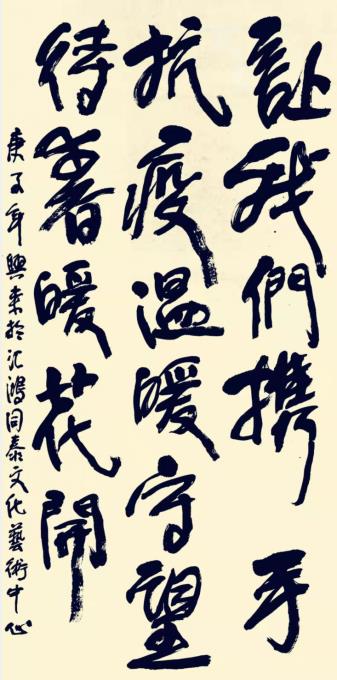 讓我們携手
抗疫温暖守望
待春暖花開
庚子年興来於汇鴻同泰文化藝術中心